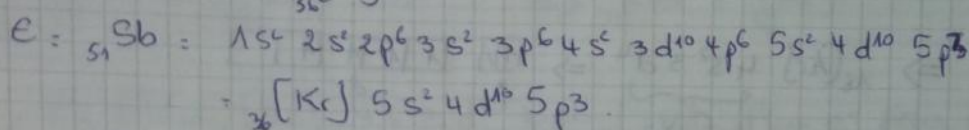 E : ₅₁Sb : 1s² 2s² 2p⁶ 3s² 3p⁶ 4s² 3d¹⁰ 4p⁶ 5s² 4d¹⁰ 5p³
= ₃₆[Kr] 5s² 4d¹⁰ 5p³.